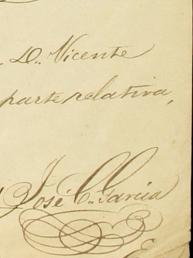 D.n Vicente
parte relativa,
José C. Garcia